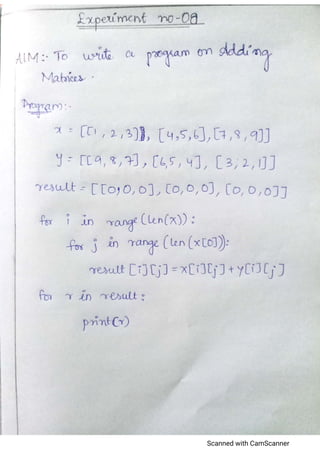 Experiment no-08
AIM:- To write a program on Adding
Matrices.
Program:-
x = [[1, 2, 3], [4,5,6],[7,8,9]]
y = [[9, 8, 7], [6,5, 4], [3, 2, 1]]
result = [[0,0,0], [0,0,0], [0,0,0]]
for i in range(len(x)):
for j in range (len(x[0])):
result [i][j] = x[i][j] + y[i][j]
for r in result:
print(r)
Scanned with CamScanner